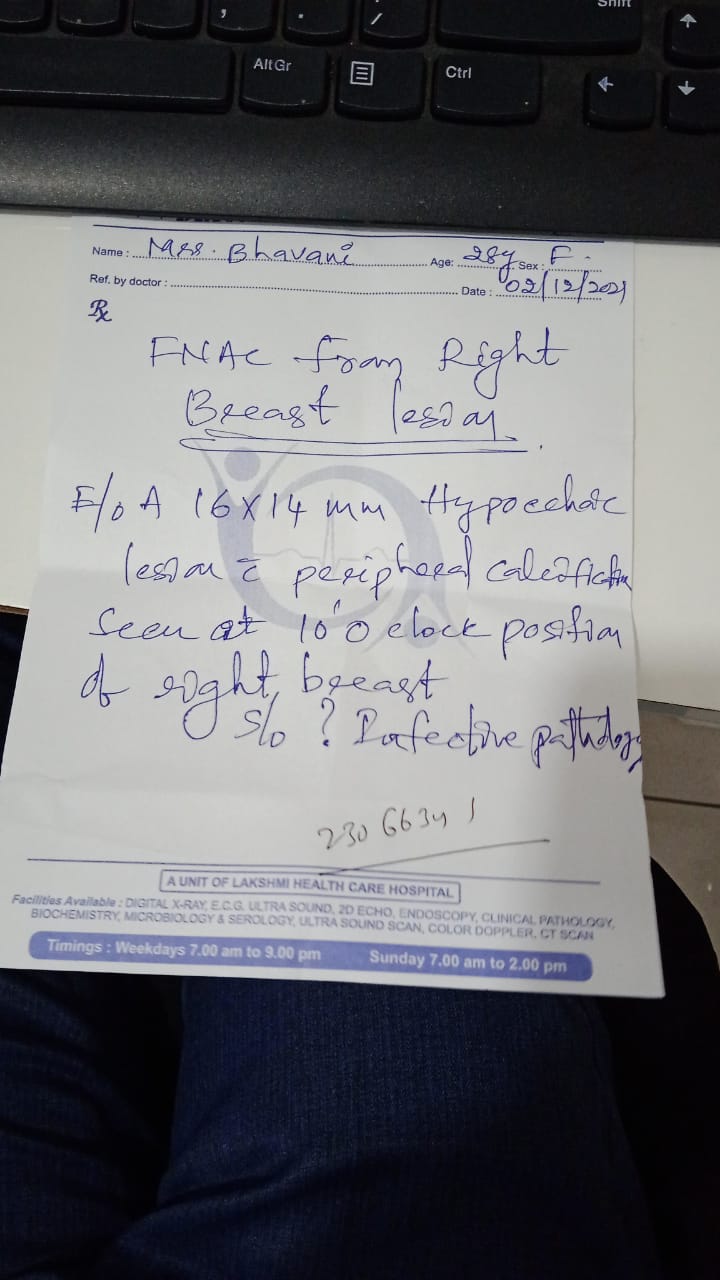 Shift
Alt Gr
Ctrl
Name : Mrs. Bhavani Age: 28y Sex : F
Ref. by doctor : Date : 02/12/2021
Rx
FNAC from Right
Breast lesion
E/o A 16 X 14 mm Hypoechoic
lesion c̄ peripheral calcification
seen at 10'o clock position
of right breast
s/o ? Infective pathology
230 6634 1
A UNIT OF LAKSHMI HEALTH CARE HOSPITAL
Facilities Available : DIGITAL X-RAY, E.C.G. ULTRA SOUND, 2D ECHO, ENDOSCOPY, CLINICAL PATHOLOGY,
BIOCHEMISTRY, MICROBIOLOGY & SEROLOGY, ULTRA SOUND SCAN, COLOR DOPPLER, CT SCAN
Timings : Weekdays 7.00 am to 9.00 pm Sunday 7.00 am to 2.00 pm